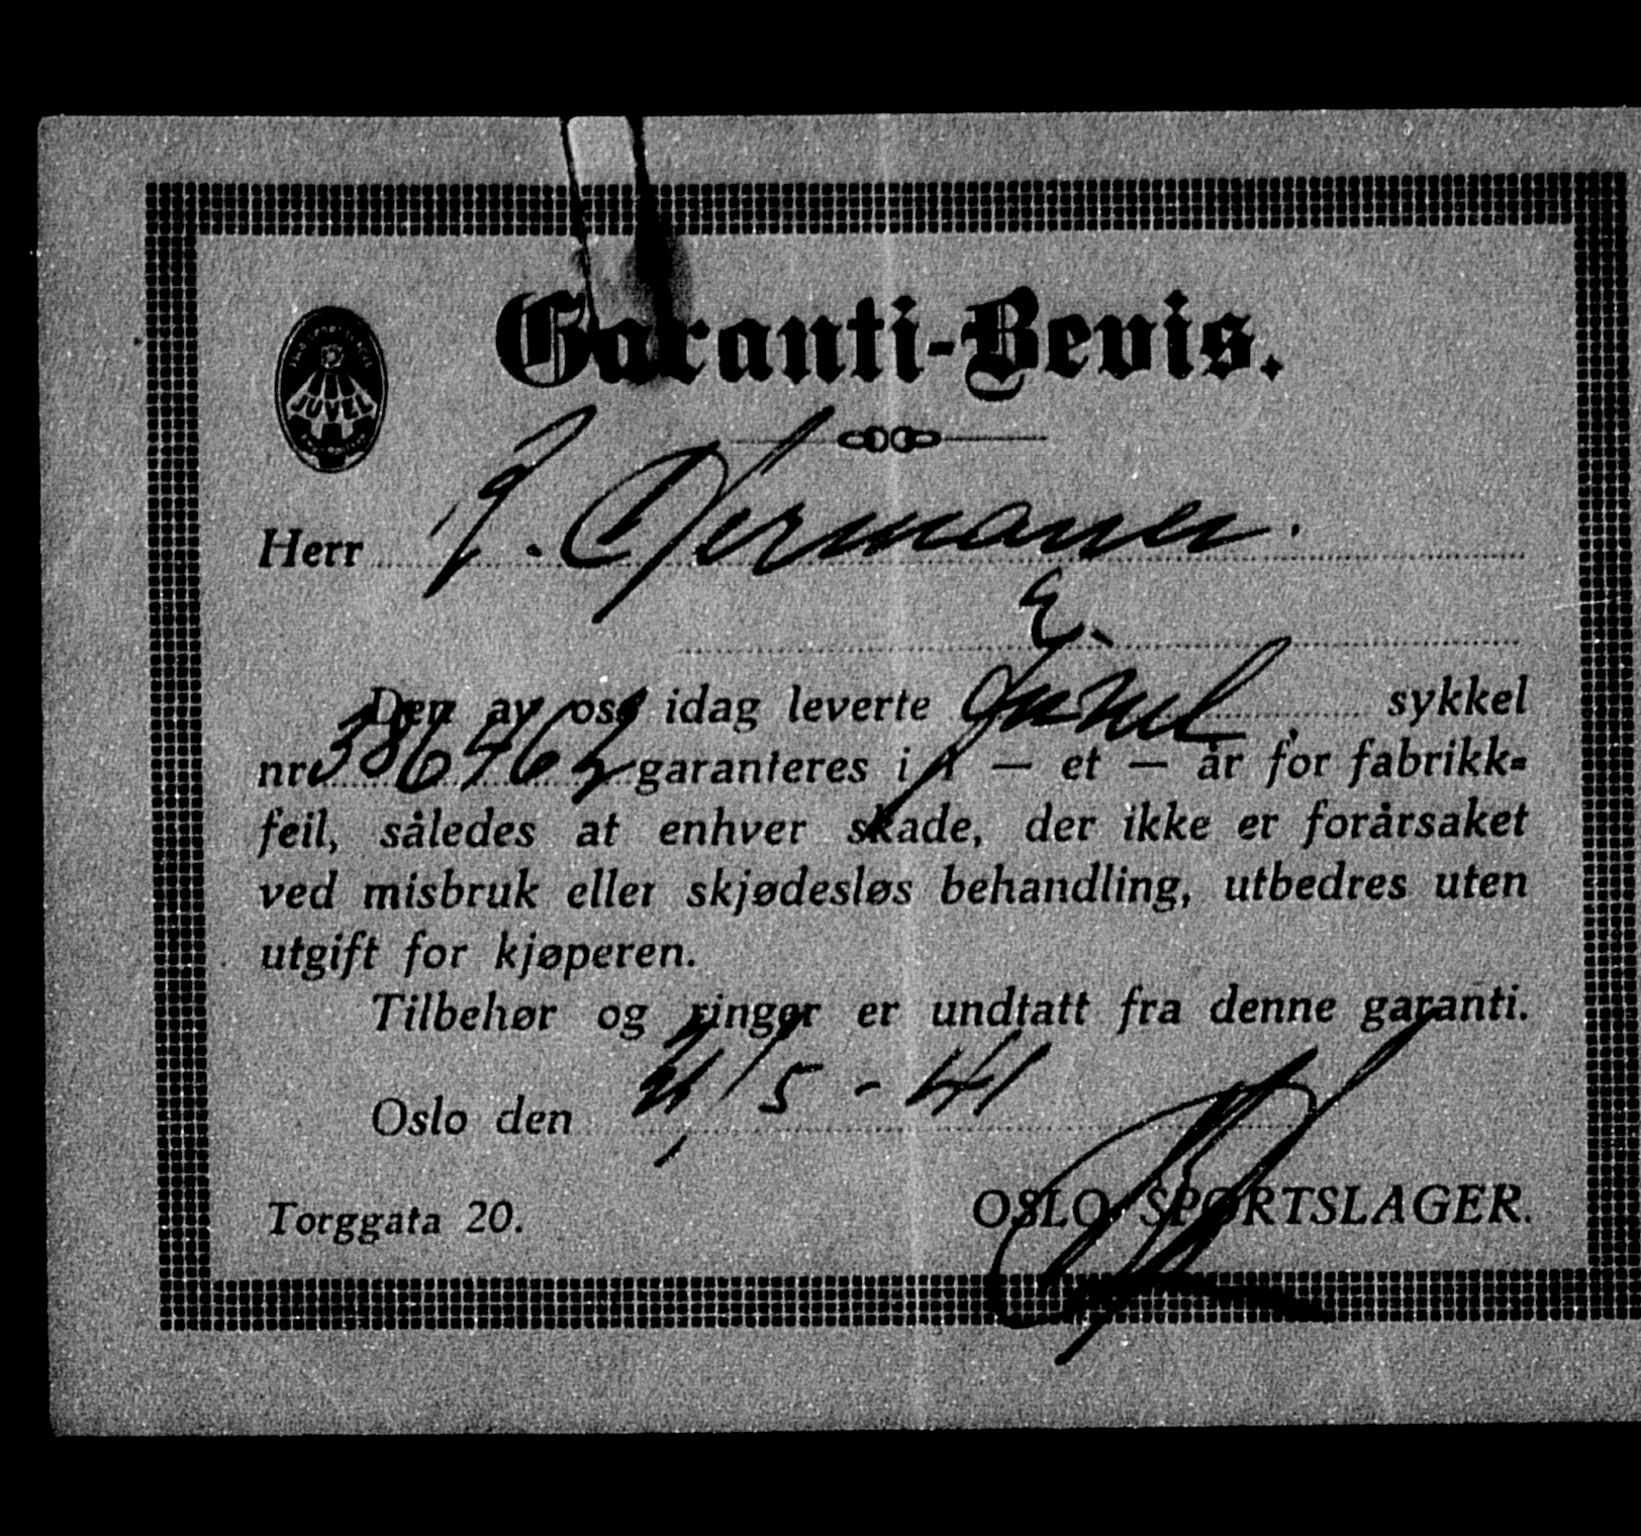 Garanti-Bevis.
JUVEL
Herr
Den av oss idag leverte Juvel sykkel
nr. garanteres i 1 — et — år for fabrikk-
feil, således at enhver skade, der ikke er forårsaket
ved misbruk eller skjødesløs behandling, utbedres uten
utgift for kjøperen.
Tilbehør og ringer er undtatt fra denne garanti.
Oslo den /5 - 41
Torggata 20.
OSLO SPORTSLAGER.